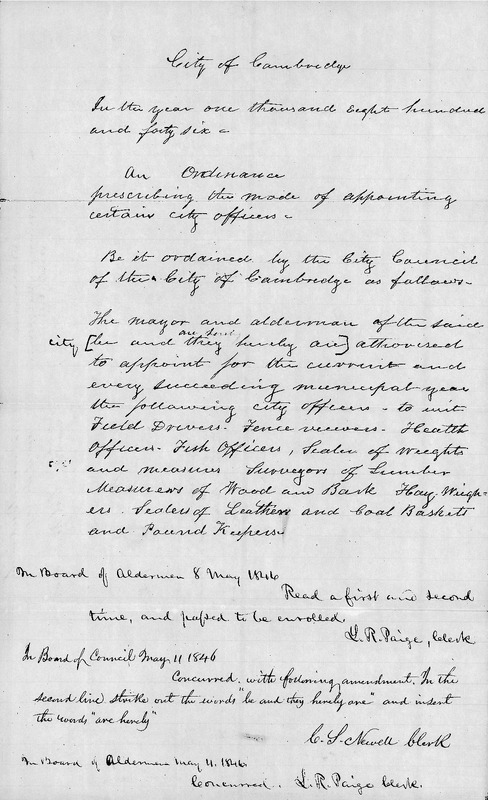 City of Cambridge
In the year one thousand eight hundred
and forty six =
An Ordinance
prescribing the mode of appointing
certain city officers =
Be it ordained by the City Council
of the City of Cambridge as follows -
The mayor and aldermen of the said
are hereby
city [be and they hereby are] athorised
to appoint for the current and
every succeeding municipal year
the following city officers - to wit
Field Drivers - Fence viewers - Health
Officers - Fish Officers, Sealer of Weights
and measures Surveyors of Lumber
Measurers of Wood and Bark Hay Weigh-
ers. Sealers of Leather and Coal Baskets
and Pound Keepers -
In Board of Aldermen 8 May 1846
Read a first and second
time, and passed to be enrolled
L. R. Paige, Clerk
In Board of Council May 11 1846
Concurred, with following amendment. In the
second line strike out the words "be and they hereby are" and insert
the words "are hereby"
C. S. Newell Clerk
In Board of Aldermen May 11. 1846
Concurred. L. R. Paige Clerk.